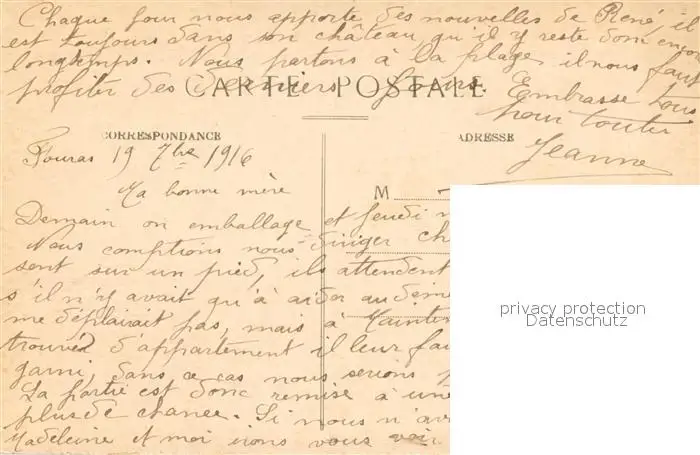 Chaque jour nous apporte des nouvelles de René, il
est toujours dans son château, qu'il y reste donc encore
longtemps. Nous partons à la plage il nous faut
profiter des derniers jours. Embrasse tous
pour toutes
Jeanne
CARTE POSTALE
CORRESPONDANCE
ADRESSE
Fouras 19 7bre 1916
Ma bonne mère
M
Demain on emballage et jeudi
Nous comptions nous diriger
sont sur un pied, ils attendent
s'il n'y avait qu'à aider au
me déplairait pas, mais à
trouvé d'appartement il leur
garni, dans ce cas nous serions
La partie est donc remise à une
plus de chance. Si nous n'
Madeleine et moi irons vous voir
privacy protection
Datenschutz